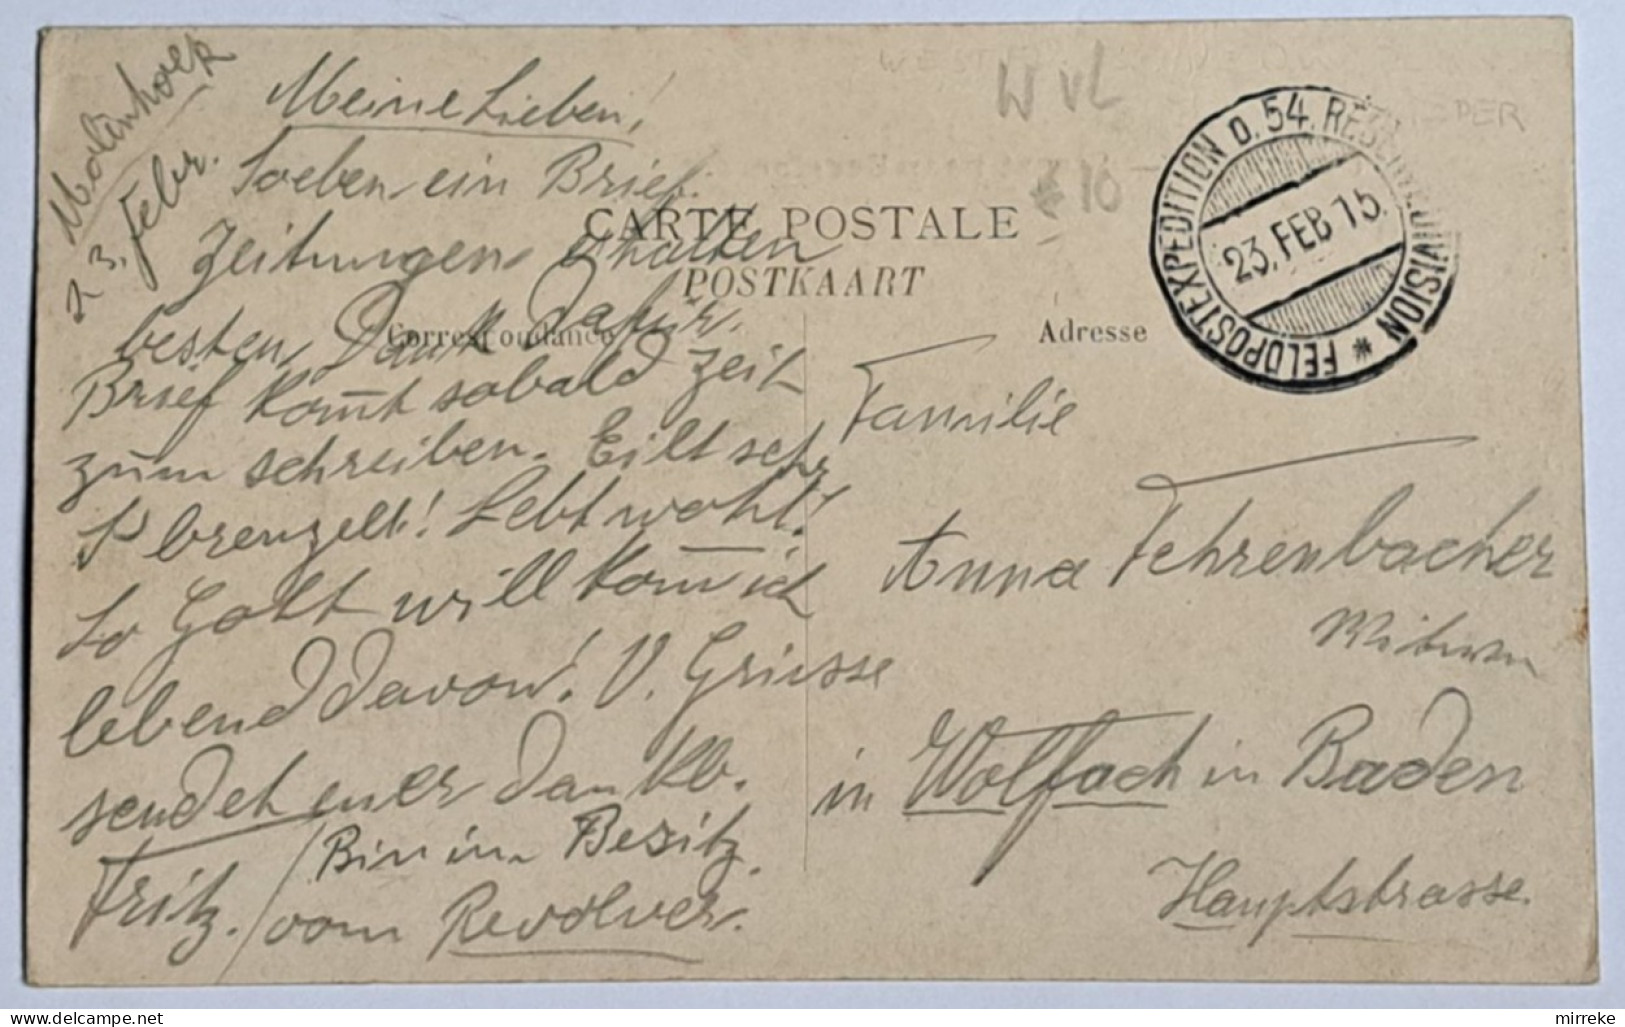 Molenhoek
23. Febr.
Meine Lieben!
Soeben ein Brief.
Zeitungen erhalten
besten Dank dafür.
Brief kom̅t sobald Zeit
zum schreiben. Eilt sehr
's brenzelt! Lebt wohl!
So Gott will kom̅ ich
lebend davon! V. Grüsse
sendet euer dankb.
Fritz. / Bin im Besitz
vom Revolver.
CARTE POSTALE
POSTKAART
Correspondance
Adresse
W VL
€ 10
FELDPOSTEXPEDITION D. 54. RESERVEDIVISION *
23. FEB 15.
Familie
Anna Fehrenbacher
Witwe
in Wolfach in Baden
Hauptstrasse.
mirreke